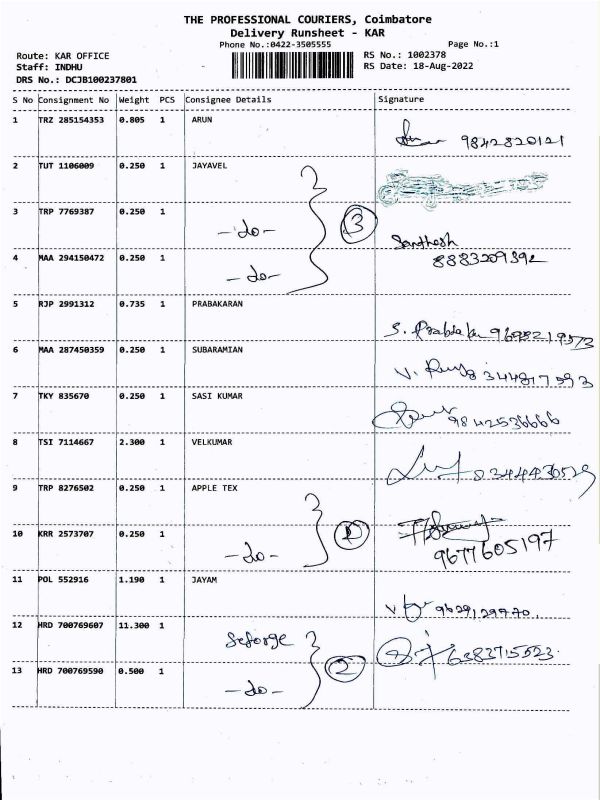 THE PROFESSIONAL COURIERS, Coimbatore
Delivery Runsheet - KAR
Phone No.:0422-3505555 Page No.:1
Route: KAR OFFICE RS No.: 1002378
Staff: INDHU RS Date: 18-Aug-2022
DRS No.: DCJB100237801
S No Consignment No Weight PCS Consignee Details Signature
1 TRZ 285154353 0.805 1 ARUN
9842820121
2 TUT 1106009 0.250 1 JAYAVEL
3 TRP 7769387 0.250 1 -do- 3
Santhosh
4 MAA 294150472 0.250 1 8883209392
-do-
5 RJP 2991312 0.735 1 PRABAKARAN
S.
6 MAA 287450359 0.250 1 SUBARAMIAN
V.
7 TKY 835670 0.250 1 SASI KUMAR
9842536666
8 TSI 7114667 2.300 1 VELKUMAR
9 TRP 8276502 0.250 1 APPLE TEX
10 KRR 2573707 0.250 1
-do- 9677605197
11 POL 552916 1.190 1 JAYAM
9629129770.
12 HRD 700769607 11.300 1
2
13 HRD 700769590 0.500 1
-do-